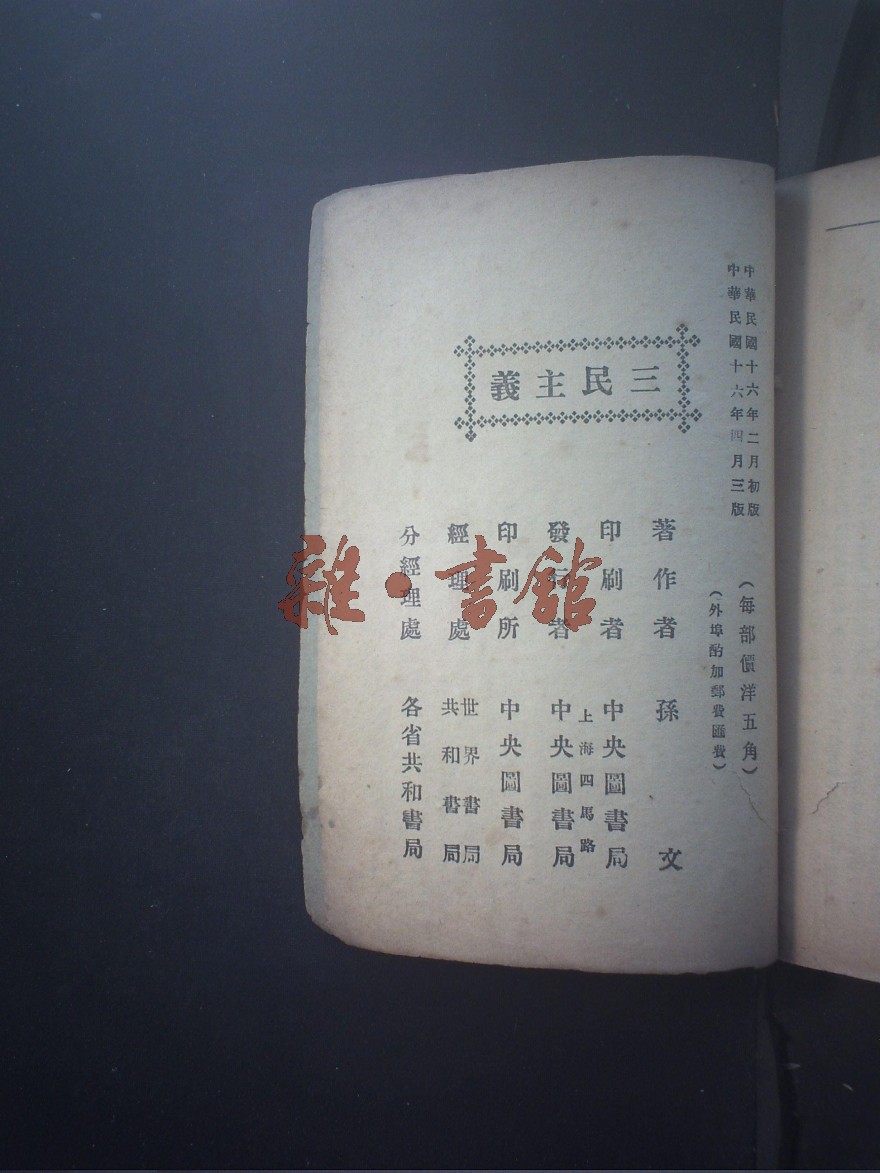 中華民國十六年二月初版
中華民國十六年四月三版
（每部價洋五角）
（外埠酌加郵費匯費）
三民主義
著作者 孫文
印刷者 中央圖書局
上海四馬路
發行者 中央圖書局
印刷所 中央圖書局
經理處 世界書局
共和書局
分經理處 各省共和書局
雜·書館